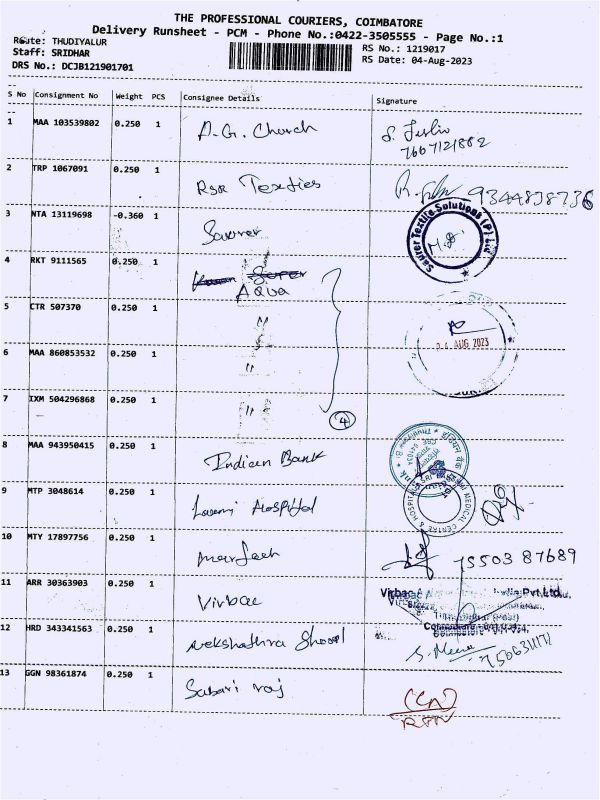 THE PROFESSIONAL COURIERS, COIMBATORE
Delivery Runsheet - PCM - Phone No.:0422-3505555 - Page No.:1
Route: THUDIYALUR
RS No.: 1219017
Staff: SRIDHAR
RS Date: 04-Aug-2023
DRS No.: DCJB121901701
S No Consignment No Weight PCS Consignee Details Signature
1 MAA 103539802 0.250 1 A.G. Church
7667121882
2 TRP 1067091 0.250 1 9344838736
3 NTA 13119698 -0.360 1 Saurer
Saurer Textile Solutions (P) Ltd
4 RKT 9111565 0.250 1 Aqua
5 CTR 507370 0.250 1 "
04 AUG 2023
6 MAA 860853532 0.250 1 "
7 IXM 504296868 0.250 1 "
4
8 MAA 943950415 0.250 1 Indian Bank
9 MTP 3048614 0.250 1 Laxmi Hospital
MEDICAL CENTRE & HOSPITAL
10 MTY 17897756 0.250 1 75503 87689
11 ARR 30363903 0.250 1 Virbac
Virbac India Pvt Ltd.
12 HRD 343341563 0.250 1 S. Meena
13 GGN 98361874 0.250 1 Sabari raj